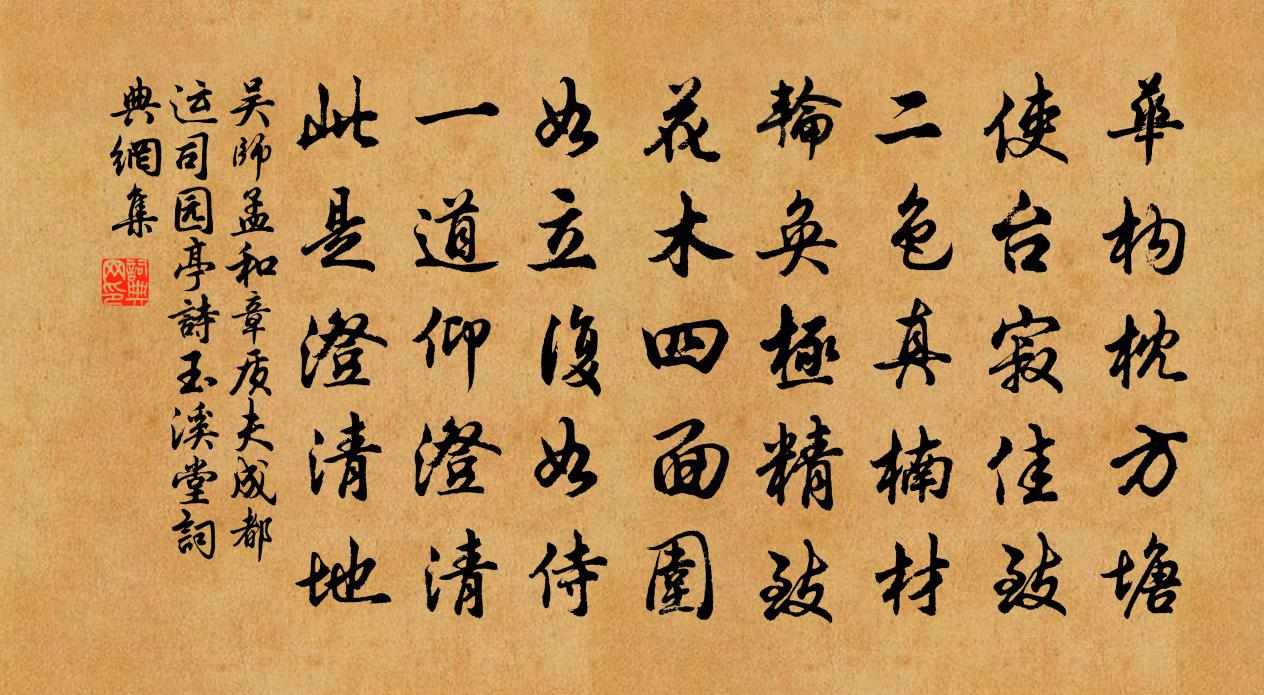 華构枕方塘
使台寂佳致
二色真楠材
輪奐極精致
花木四面圍
如立復如侍
一道仰澄清
此是澄清地
吴師孟和章质夫成都
运司园亭詩玉溪堂詞
典網集
詞典網印